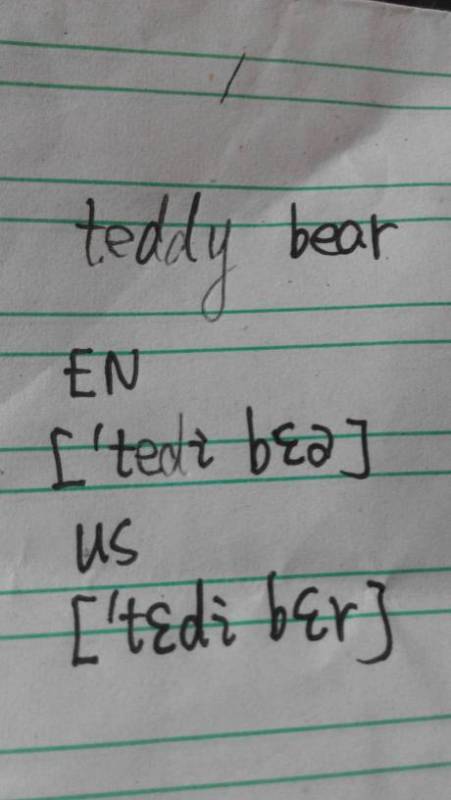 teddy bear
EN
['tedi bɛə]
US
['tɛdi bɛr]